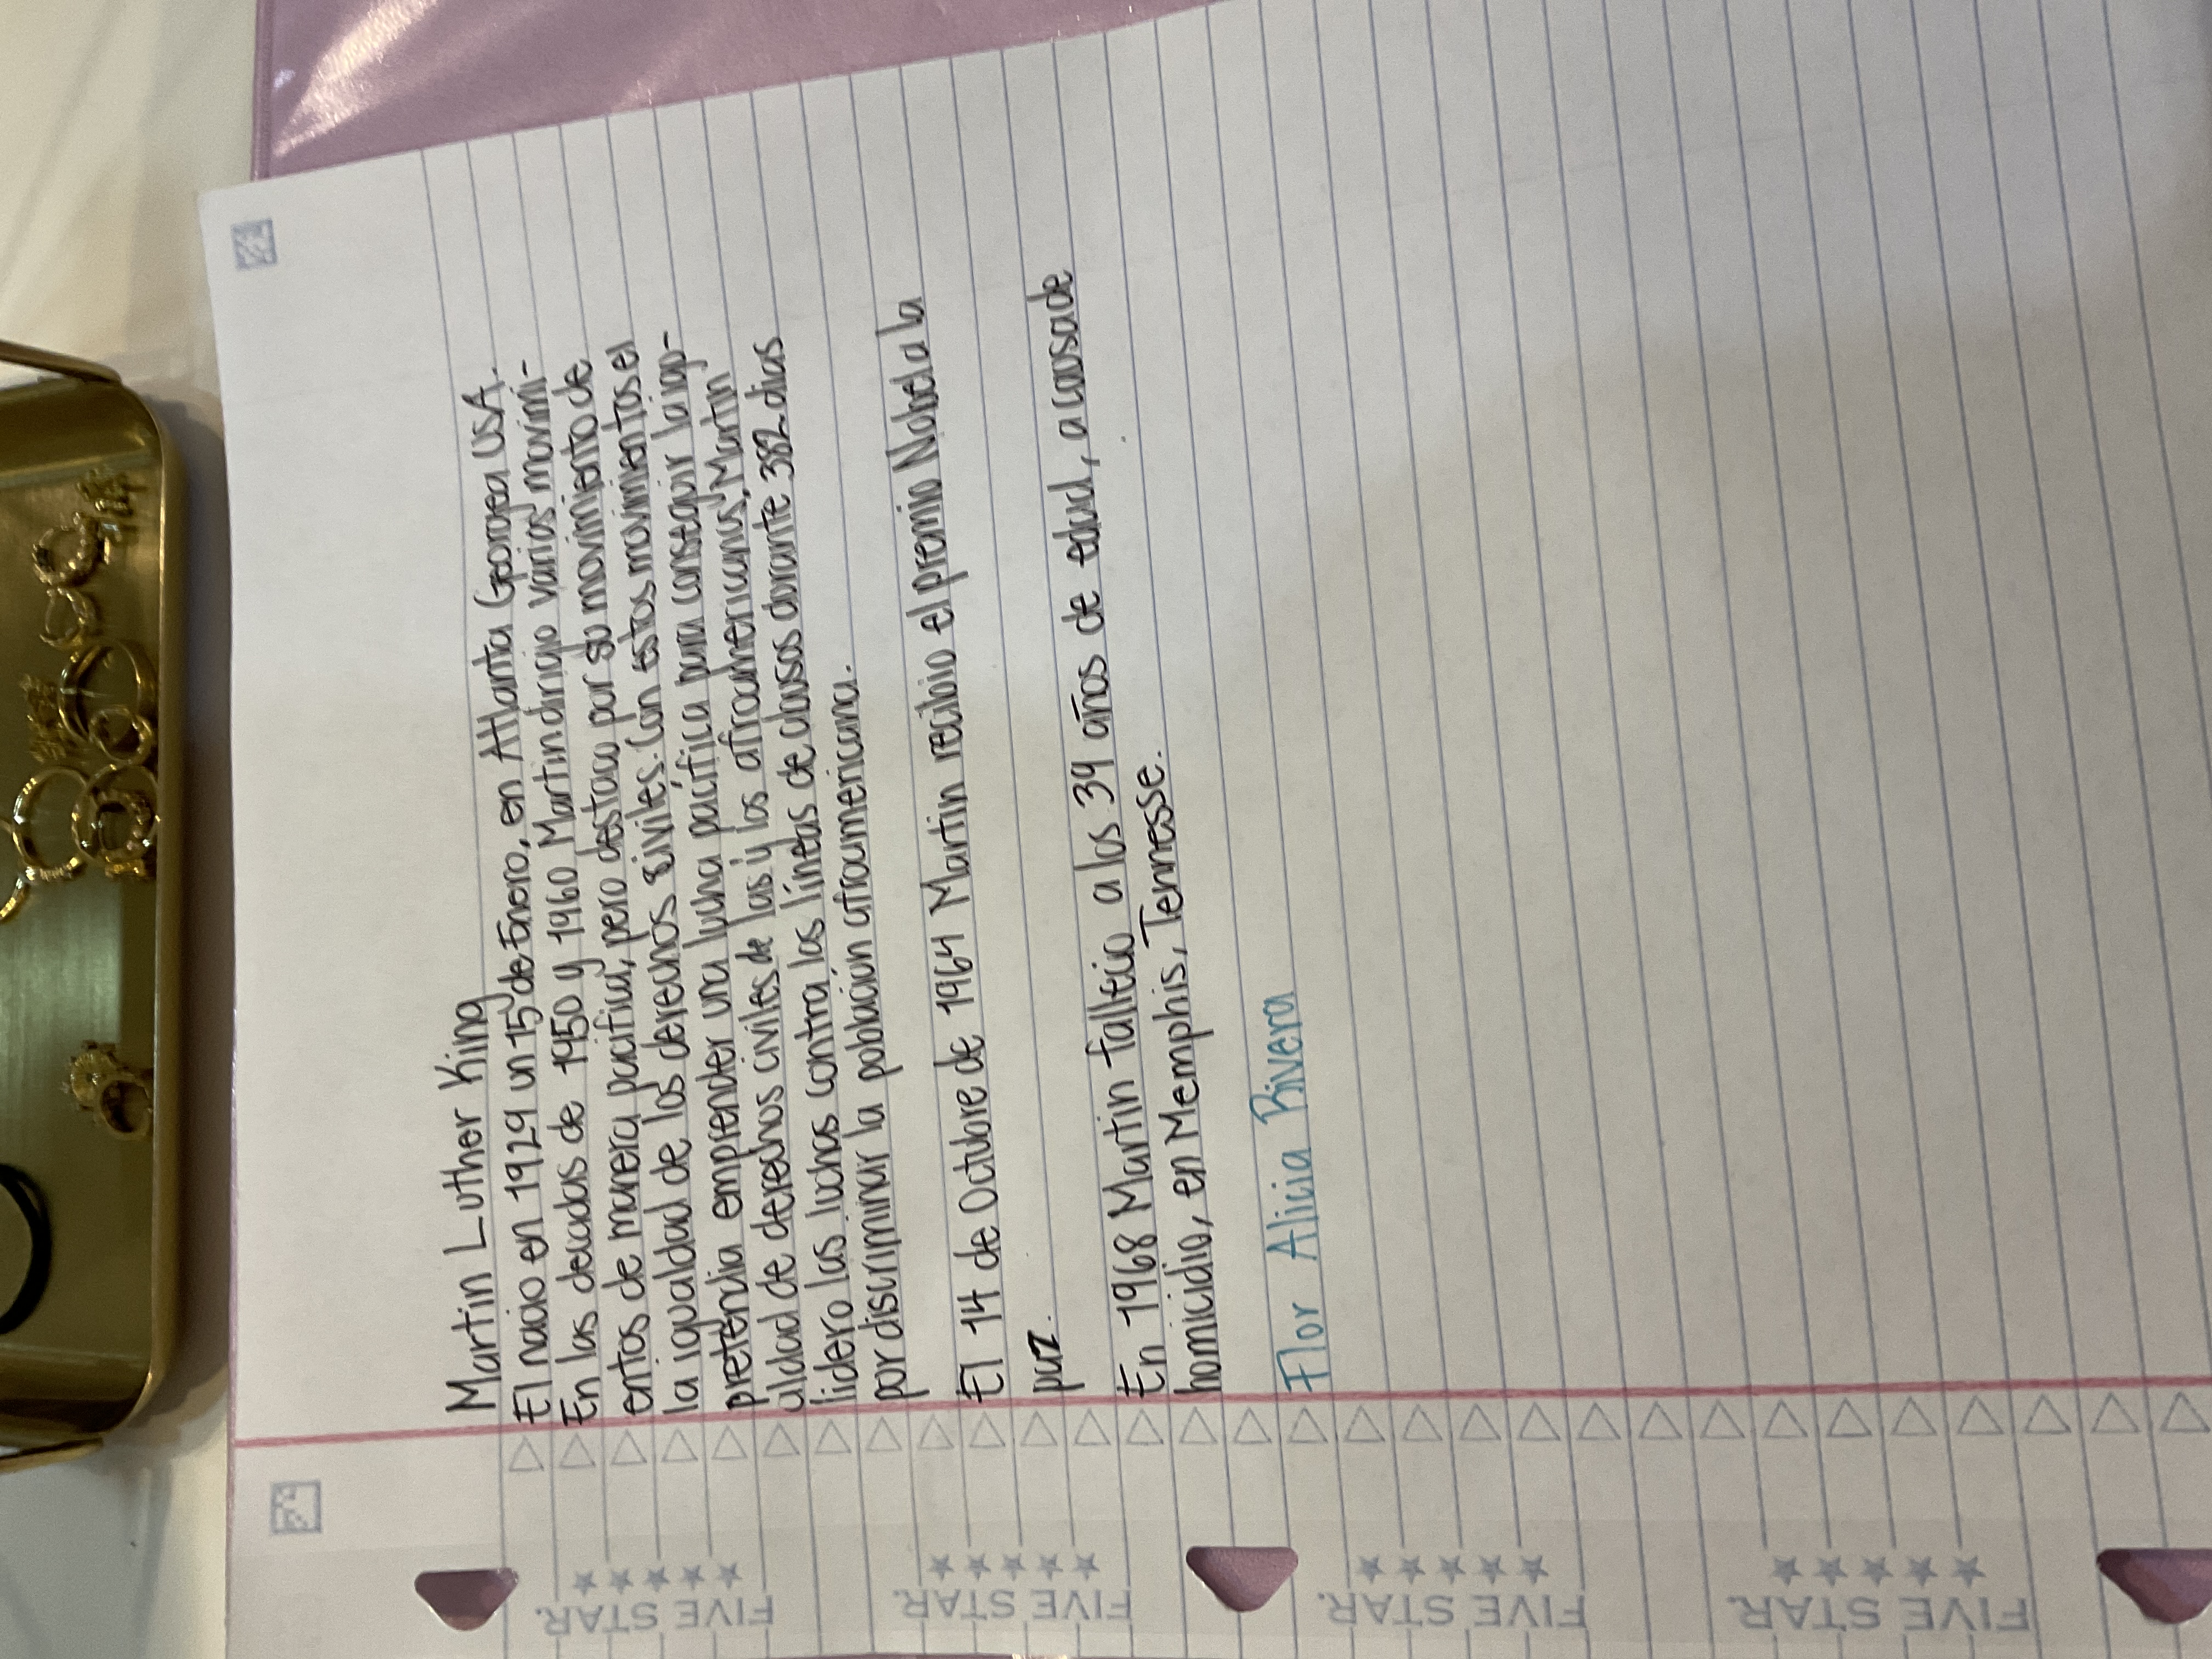 Martin Luther King
El nacio en 1929 un 15 de Enero, en Atlanta Georgea USA.
En las decadas de 1950 y 1960 Martin dirigio varios movimi-
entos de manera pacifica, pero destaco por su movimiento de
la igualdad de los derechos siviles. Con estos movimientos el
pretendia emprender una lucha pacífica para conseguir la igu-
aldad de derechos civiles de las y los afroamericanos, Martin
lidero las luchas contra las líneas de abusos durante 382 dias
por discriminar la población afroamericana.
El 14 de Octubre de 1964 Martin recibio el premio Nobel a la
paz.
En 1968 Martin fallecio a los 39 años de edad, a causa de
homicidio, en Memphis, Tennesse.
Flor Alicia Rivera
FIVE STAR.
FIVE STAR.
FIVE STAR.
FIVE STAR.